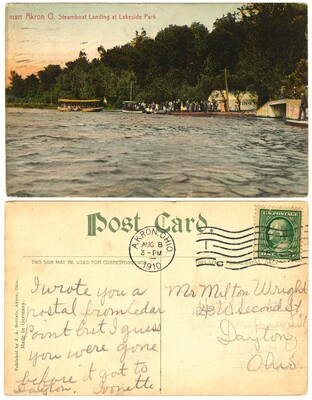 Akron O. Steamboat Landing at Lakeside Park
Post Card
THIS SIDE MAY BE USED FOR CORRESPONDENCE
AKRON, OHIO
AUG 8
3-PM
1910
U.S. POSTAGE
I wrote you a
postal from Cedar
Point but I guess
you were gone
before it got to
Dayton. Ivonette.
Mr Milton Wright
W. Second St,
Dayton,
Ohio.
Made in Germany.